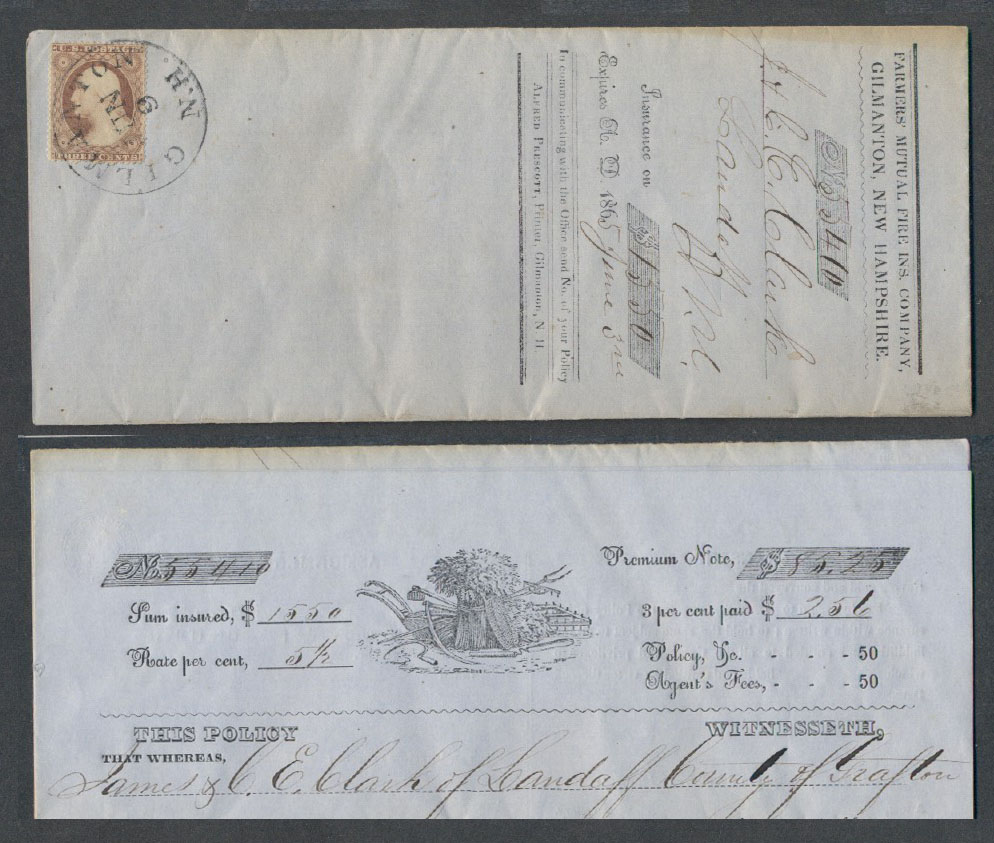 U.S. POSTAGE
THREE CENTS
GILMANTON N.H.
JUN
9
FARMERS' MUTUAL FIRE INS. COMPANY,
GILMANTON, NEW HAMPSHIRE.
No 55410
J. & C. E. Clark
Landaff N.H.
Insurance on $ 1550
Expires A. D. 1865 June 3rd
In communicating with the Office send No. of your Policy
ALFRED PRESCOTT, Printer, Gilmanton, N. H.
No. 55410
Sum insured, $ 1550
Rate per cent, 5½
Premium Note, $ 85.25
3 per cent paid $ 2.56
Policy, &c. - - - 50
Agent's Fees, - - - 50
THIS POLICY WITNESSETH,
THAT WHEREAS,
James & C. E. Clark of Landaff County of Grafton